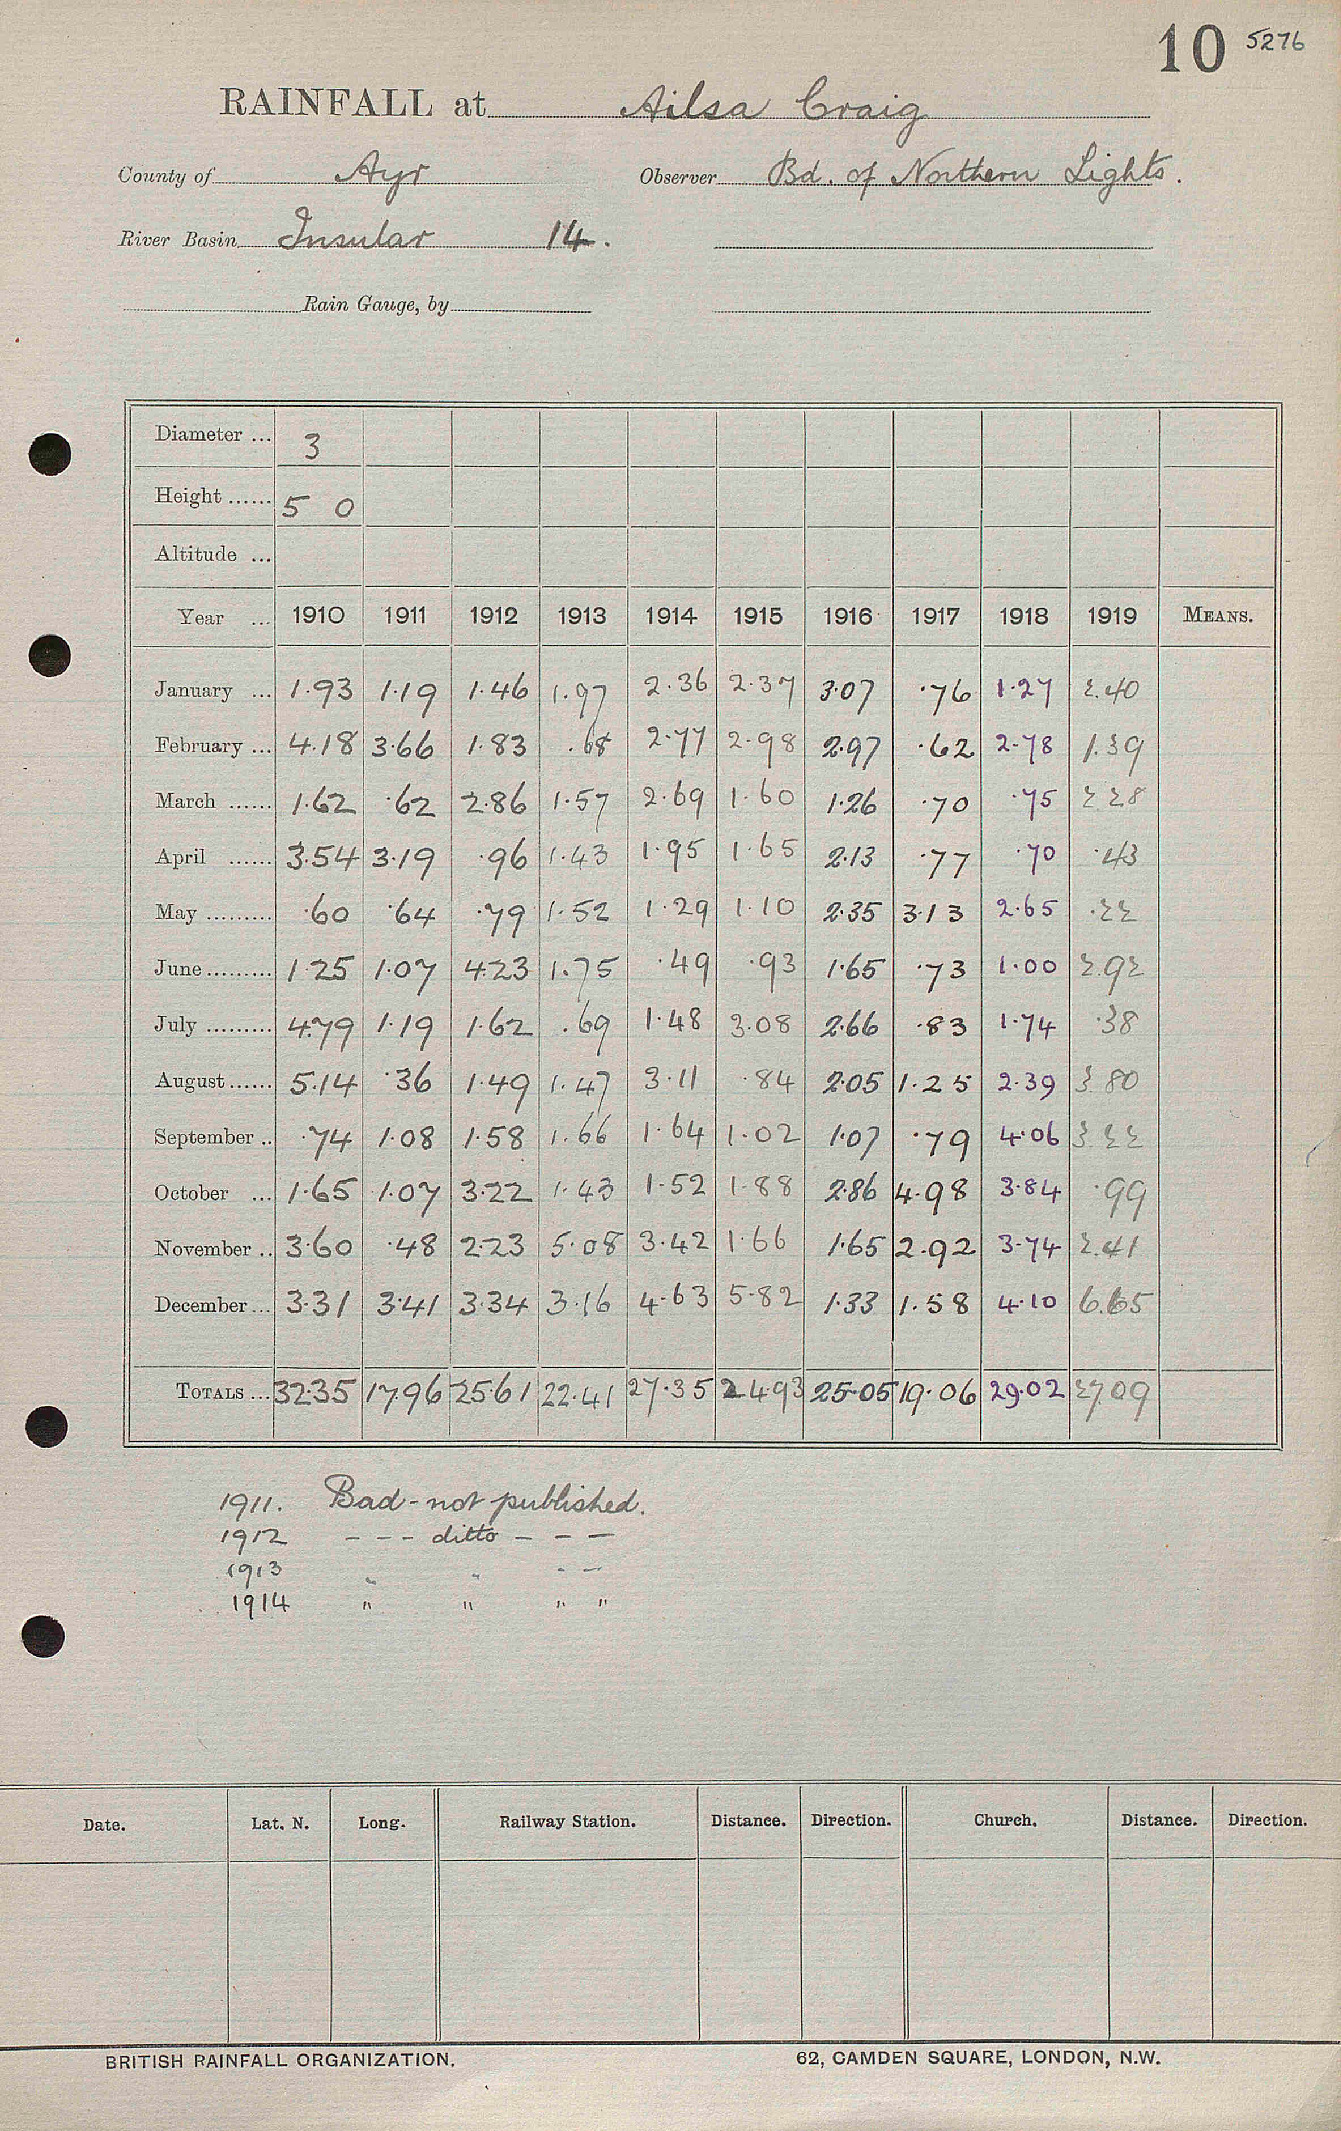 10 5276
RAINFALL at Ailsa Craig
County of Ayr Observer Bd. of Northern Lights.
River Basin Insular 14.
Rain Gauge, by
Diameter ... 3
Height ...... 5 0
Altitude ...
Year ... 1910 1911 1912 1913 1914 1915 1916 1917 1918 1919 MEANS.
January ... 1.93 1.19 1.46 1.97 2.36 2.37 3.07 .76 1.27 2.40
February ... 4.18 3.66 1.83 .68 2.77 2.98 2.97 .62 2.78 1.39
March ...... 1.62 .62 2.86 1.57 2.69 1.60 1.26 .70 .75 2.28
April ...... 3.54 3.19 .96 1.43 1.95 1.65 2.13 .77 .70 .43
May ......... .60 .64 .79 1.52 1.29 1.10 2.35 3.13 2.65 .22
June ......... 1.25 1.07 4.23 1.75 .49 .93 1.65 .73 1.00 2.92
July ......... 4.79 1.19 1.62 .69 1.48 3.08 2.66 .83 1.74 .38
August ...... 5.14 .36 1.49 1.47 3.11 .84 2.05 1.25 2.39 3.80
September .. .74 1.08 1.58 1.66 1.64 1.02 1.07 .79 4.06 3.22
October ... 1.65 1.07 3.22 1.43 1.52 1.88 2.86 4.98 3.84 .99
November .. 3.60 .48 2.23 5.08 3.42 1.66 1.65 2.92 3.74 2.41
December ... 3.31 3.41 3.34 3.16 4.63 5.82 1.33 1.58 4.10 6.65
TOTALS ... 32.35 17.96 25.61 22.41 27.35 24.93 25.05 19.06 29.02 27.09
1911. Bad - not published.
1912 - - - ditto - - -
1913 " " - -
1914 " " " "
Date. Lat. N. Long. Railway Station. Distance. Direction. Church. Distance. Direction.
BRITISH RAINFALL ORGANIZATION. 62, CAMDEN SQUARE, LONDON, N.W.